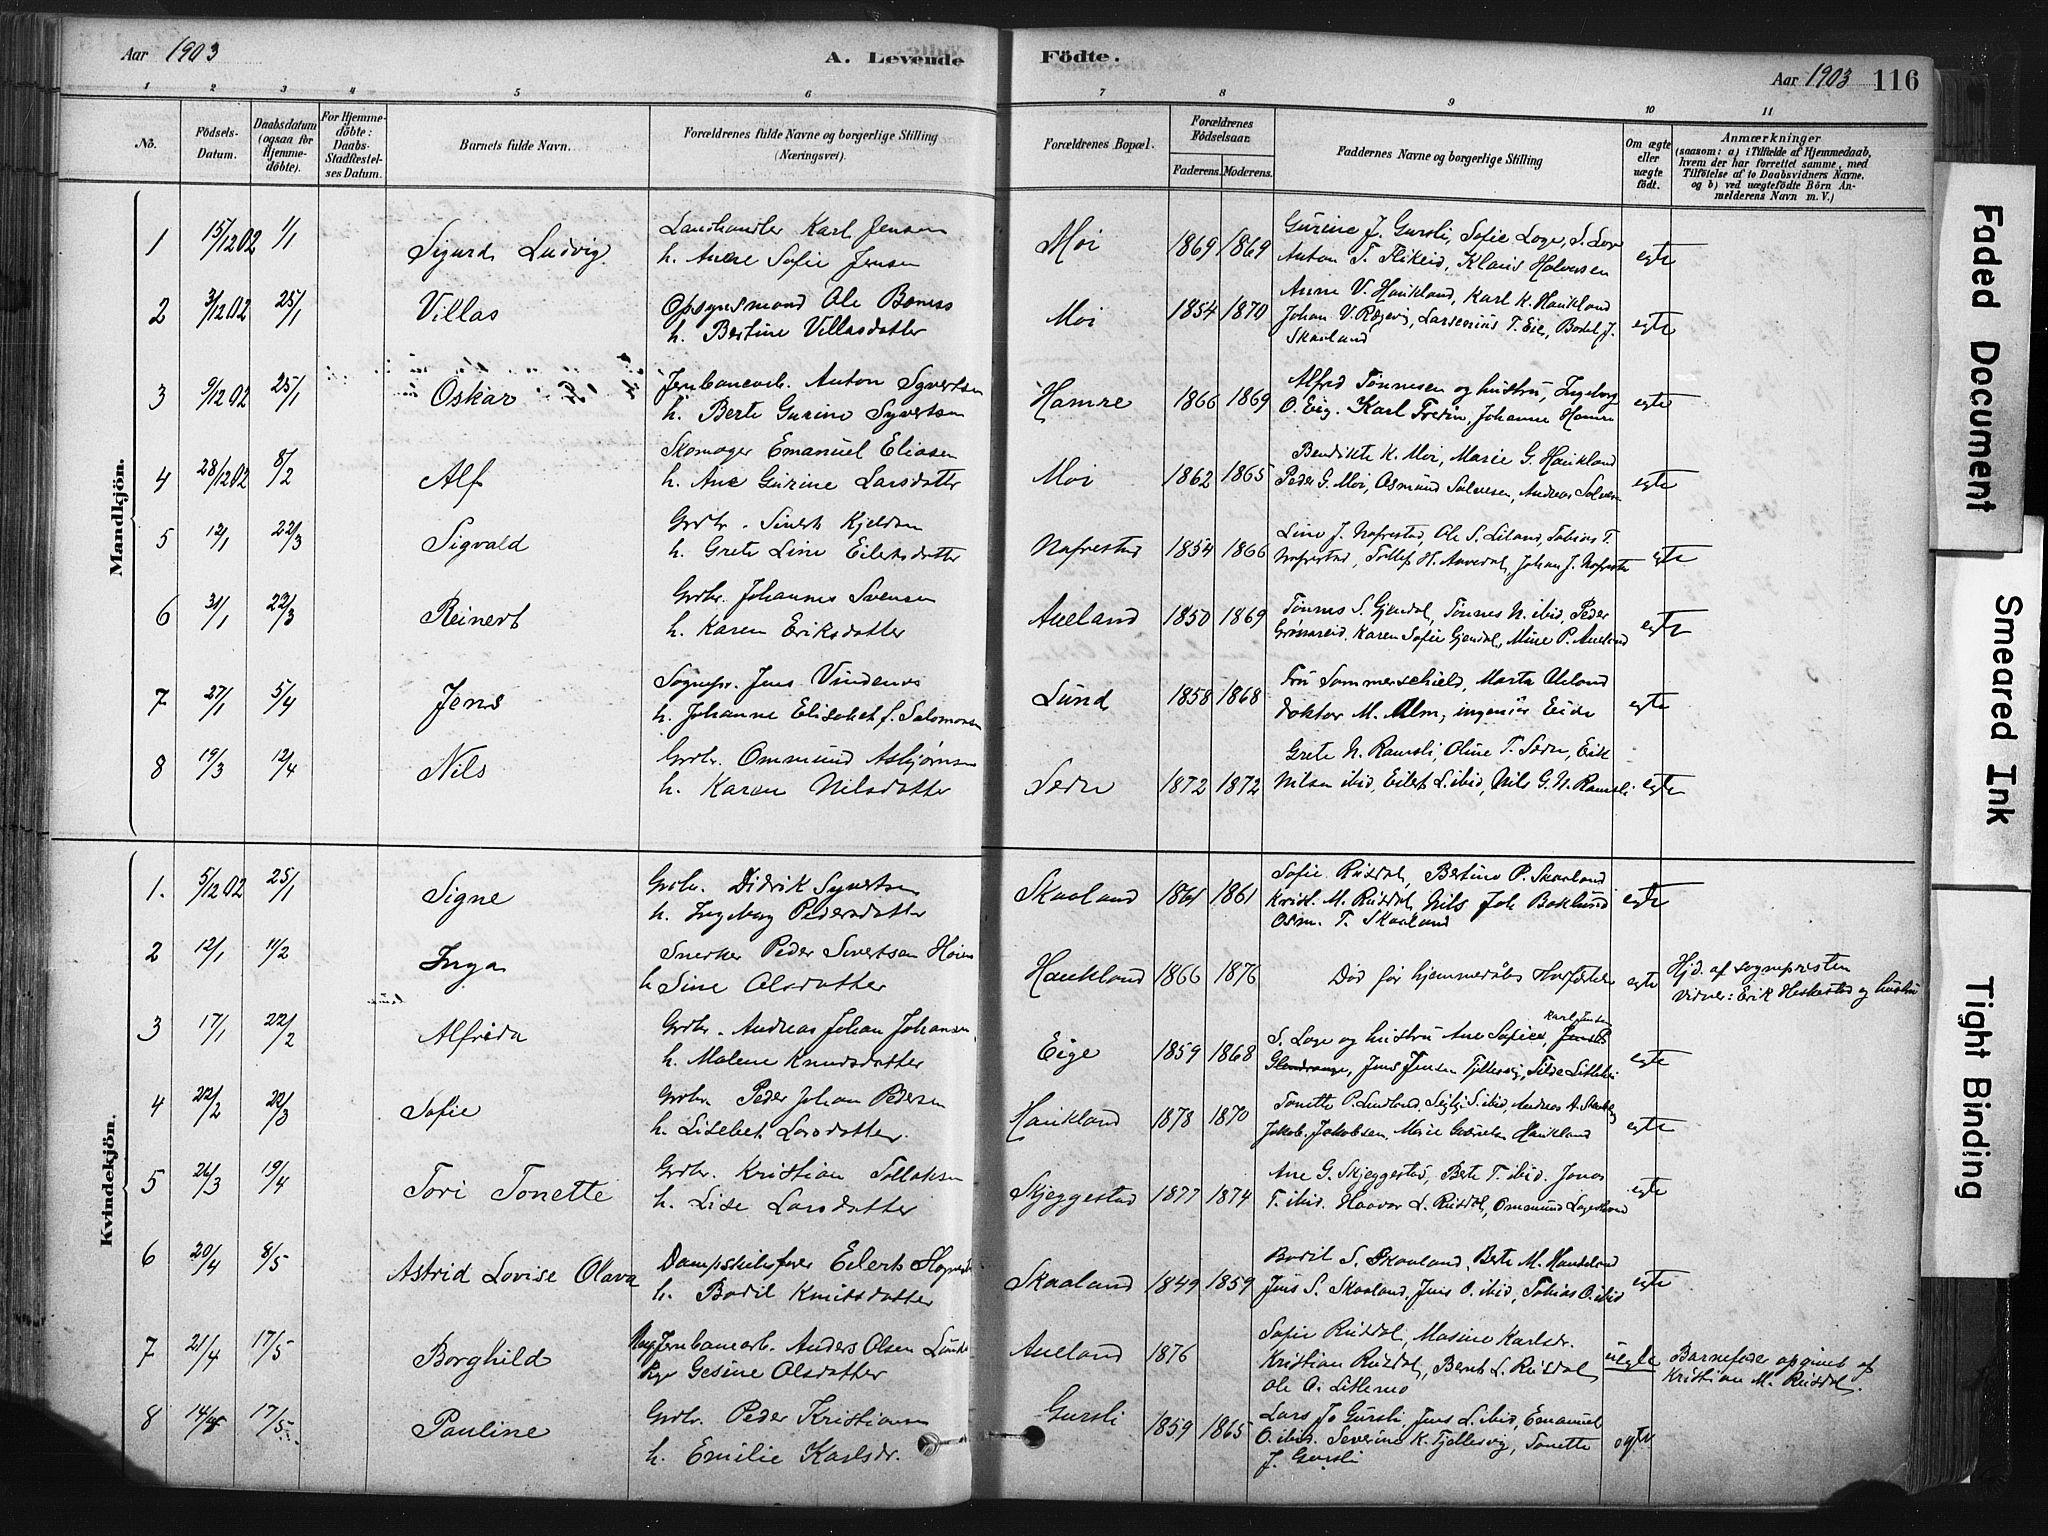 Aar 1903
A. Levende Födte.
Aar 1903 116
1 2 3 4 5 6 7 8 9 10 11
No.
Födsels-Datum.
Daabsdatum (ogsaa for Hjemmedöbte).
For Hjemmedöbte: Daabs-Stadfæstelses Datum.
Barnets fulde Navn.
Forældrenes fulde Navne og borgerlige Stilling (Næringsvei).
Forældrenes Bopæl.
Forældrenes Födselsaar.
Faderens. Moderens.
Faddernes Navne og borgerlige Stilling
Om ægte eller uægte födt.
Anmærkninger
(saasom: a) i Tilfælde af Hjemmedaab,
hvem der har forrettet samme, med
Tilföielse af to Daabsvidners Navne,
og b) ved uægtefödte Börn An-
melderens Navn m. V.)
Mandkjön.
1 15/12 02 1/1 Sigurd Ludvig
Landhandler Karl Jensen
h. Anne Sofie Jensen
Moi 1869 1869
Gurine J. Gursli, Sofie Loge, S. Loge
Anton T. Flikeid, Klaus Halvorsen
egte
2 3/12 02 25/1 Villas
Opsynsmand Ole
h. Bertine Villasdatter
Moi 1854 1870
Anne V. Haukland, Karl K. Haukland
Johan V. Rægevig, Larsenius T. Eie, Bodil J.
Skaaland
egte
3 9/12 02 25/1 Oskar
Jernbanearb. Anton Syvertsen
h. Berte Gurine Syvertsen
Hamre 1866 1869
Alfred Tønnesen og hustru, Ingeborg
O. Eig, Karl Fredin, Johanne Hamre
egte
4 28/12 02 8/2 Alf
Skomager Emanuel Eliasen
h. Ane Gurine Larsdatter
Moi 1862 1865
Bendikte K. Moi, Marie G. Haukland
Peder G. Moi, Osmund Salvesen, Andreas Salvesen
egte
5 12/1 22/3 Sigvald
Grdbr. Sivert Kjeldsen
h. Grete Line Eilertsdatter
Nafrestad 1854 1866
Line J. Nafrestad, Ole S. Liland, Tobias T.
Nafrestad, Tollef H. Aavedal, Johan J. Nafrestad
egte
6 31/1 22/3 Reinert
Grdbr. Johannes Svensen
h. Karen Eriksdatter
Aueland 1850 1869
Tønnes S. Gjendal, Tønnes N. ibid, Peder
Grønsreid, Karen Sofie Gjendal, Mine P. Aueland
egte
7 27/1 5/4 Jens
Sognepr. Jens Vindenes
h. Johanne Elisabet f. Salomonsen
Lund 1858 1868
Fru Sommerschield, Marta Oland
doktor M. Alm, ingeniør Eide
egte
8 19/3 12/4 Nils
Grdbr. Ommund Asbjørnsen
h. Karen Nilsdatter
Serdu 1872 1872
Grete N. Ramsli, Oline T. Serdu, Erik
Nilsen ibid, Eilert L. ibid, Nils G. N. Ramsli
egte
Kvindekjön.
1. 5/12 02 25/1 Signe
Grdbr. Didrik Syvertsen
h. Ingeborg Pedersdatter
Skaaland 1861 1861
Sofie Rusdal, Bertine P. Skaaland
Krist. M. Rusdal, Nils Joh Boklund
Osm. T. Skaaland
egte
2 12/1 11/2 Inga
Snerker Peder Sivertsen Høien
h Sine Olsdatter
Haukland 1866 1876
Død før hjemmedåbs
egte
Hjd. af sognepresten
Vidner: Erik Heskestad og hustru
3 17/1 22/2 Alfrida
Grdbr. Andreas Johan Johansen
h. Malene Knudsdatter
Eige 1859 1868
Karl Jensen
S. Loge og hustru Ane Sofie,
Glendrange, Jens Jensen Fjellesvig, Tilde Litlehei
egte
4 22/2 22/3 Sofie
Grdbr. Peder Johan Pedersen
h. Lisebet Larsdatter.
Haukland 1878 1870
Tonette P. Lindland, S. ibid, Andreas A.
Jakob Jakobsen, Marie Haukland
egte
5 26/3 19/4 Tori Tonette
Grdbr. Kristian Tollaksen
h. Lise Larsdatter
Skjeggestad 1877 1874
Ane G. Skjeggestad, Berte T. ibid, Jonas
T. ibid. Haavar L. Rusdal, Ommund
egte
6 20/4 8/5 Astrid Lovise Olava
Dampskibsfører Eilert
h. Bodil Knutsdatter
Skaaland 1849 1859
Bodil S. Skaaland, Berte M. Haukeland
Jens S. Skaaland, Jens O. ibid, Tobias O. ibid
egte
7 21/4 17/5 Borghild
Ung. Jernbanearb. Anders Olsen Lunde
Pige Gesine Olsdatter
Aueland 1876
Sofie Rusdal, Masine Karlsdr.
Kristian Rusdal, Bernt L. Rusdal
Ole O. Litlemo
uegte
Barnefader opgivet af
Kristian M. Rusdal.
8 14/4 17/5 Pauline
Grdbr. Peder Kristiansen
h. Emilie Karlsdr.
Gursli 1859 1865
Lars Jo Gursli, Jens L. ibid, Emanuel
O. ibid. Severine K. Fjellesvig, Tonette
J. Gursli
egte
Faded Document
Smeared Ink
Tight Binding